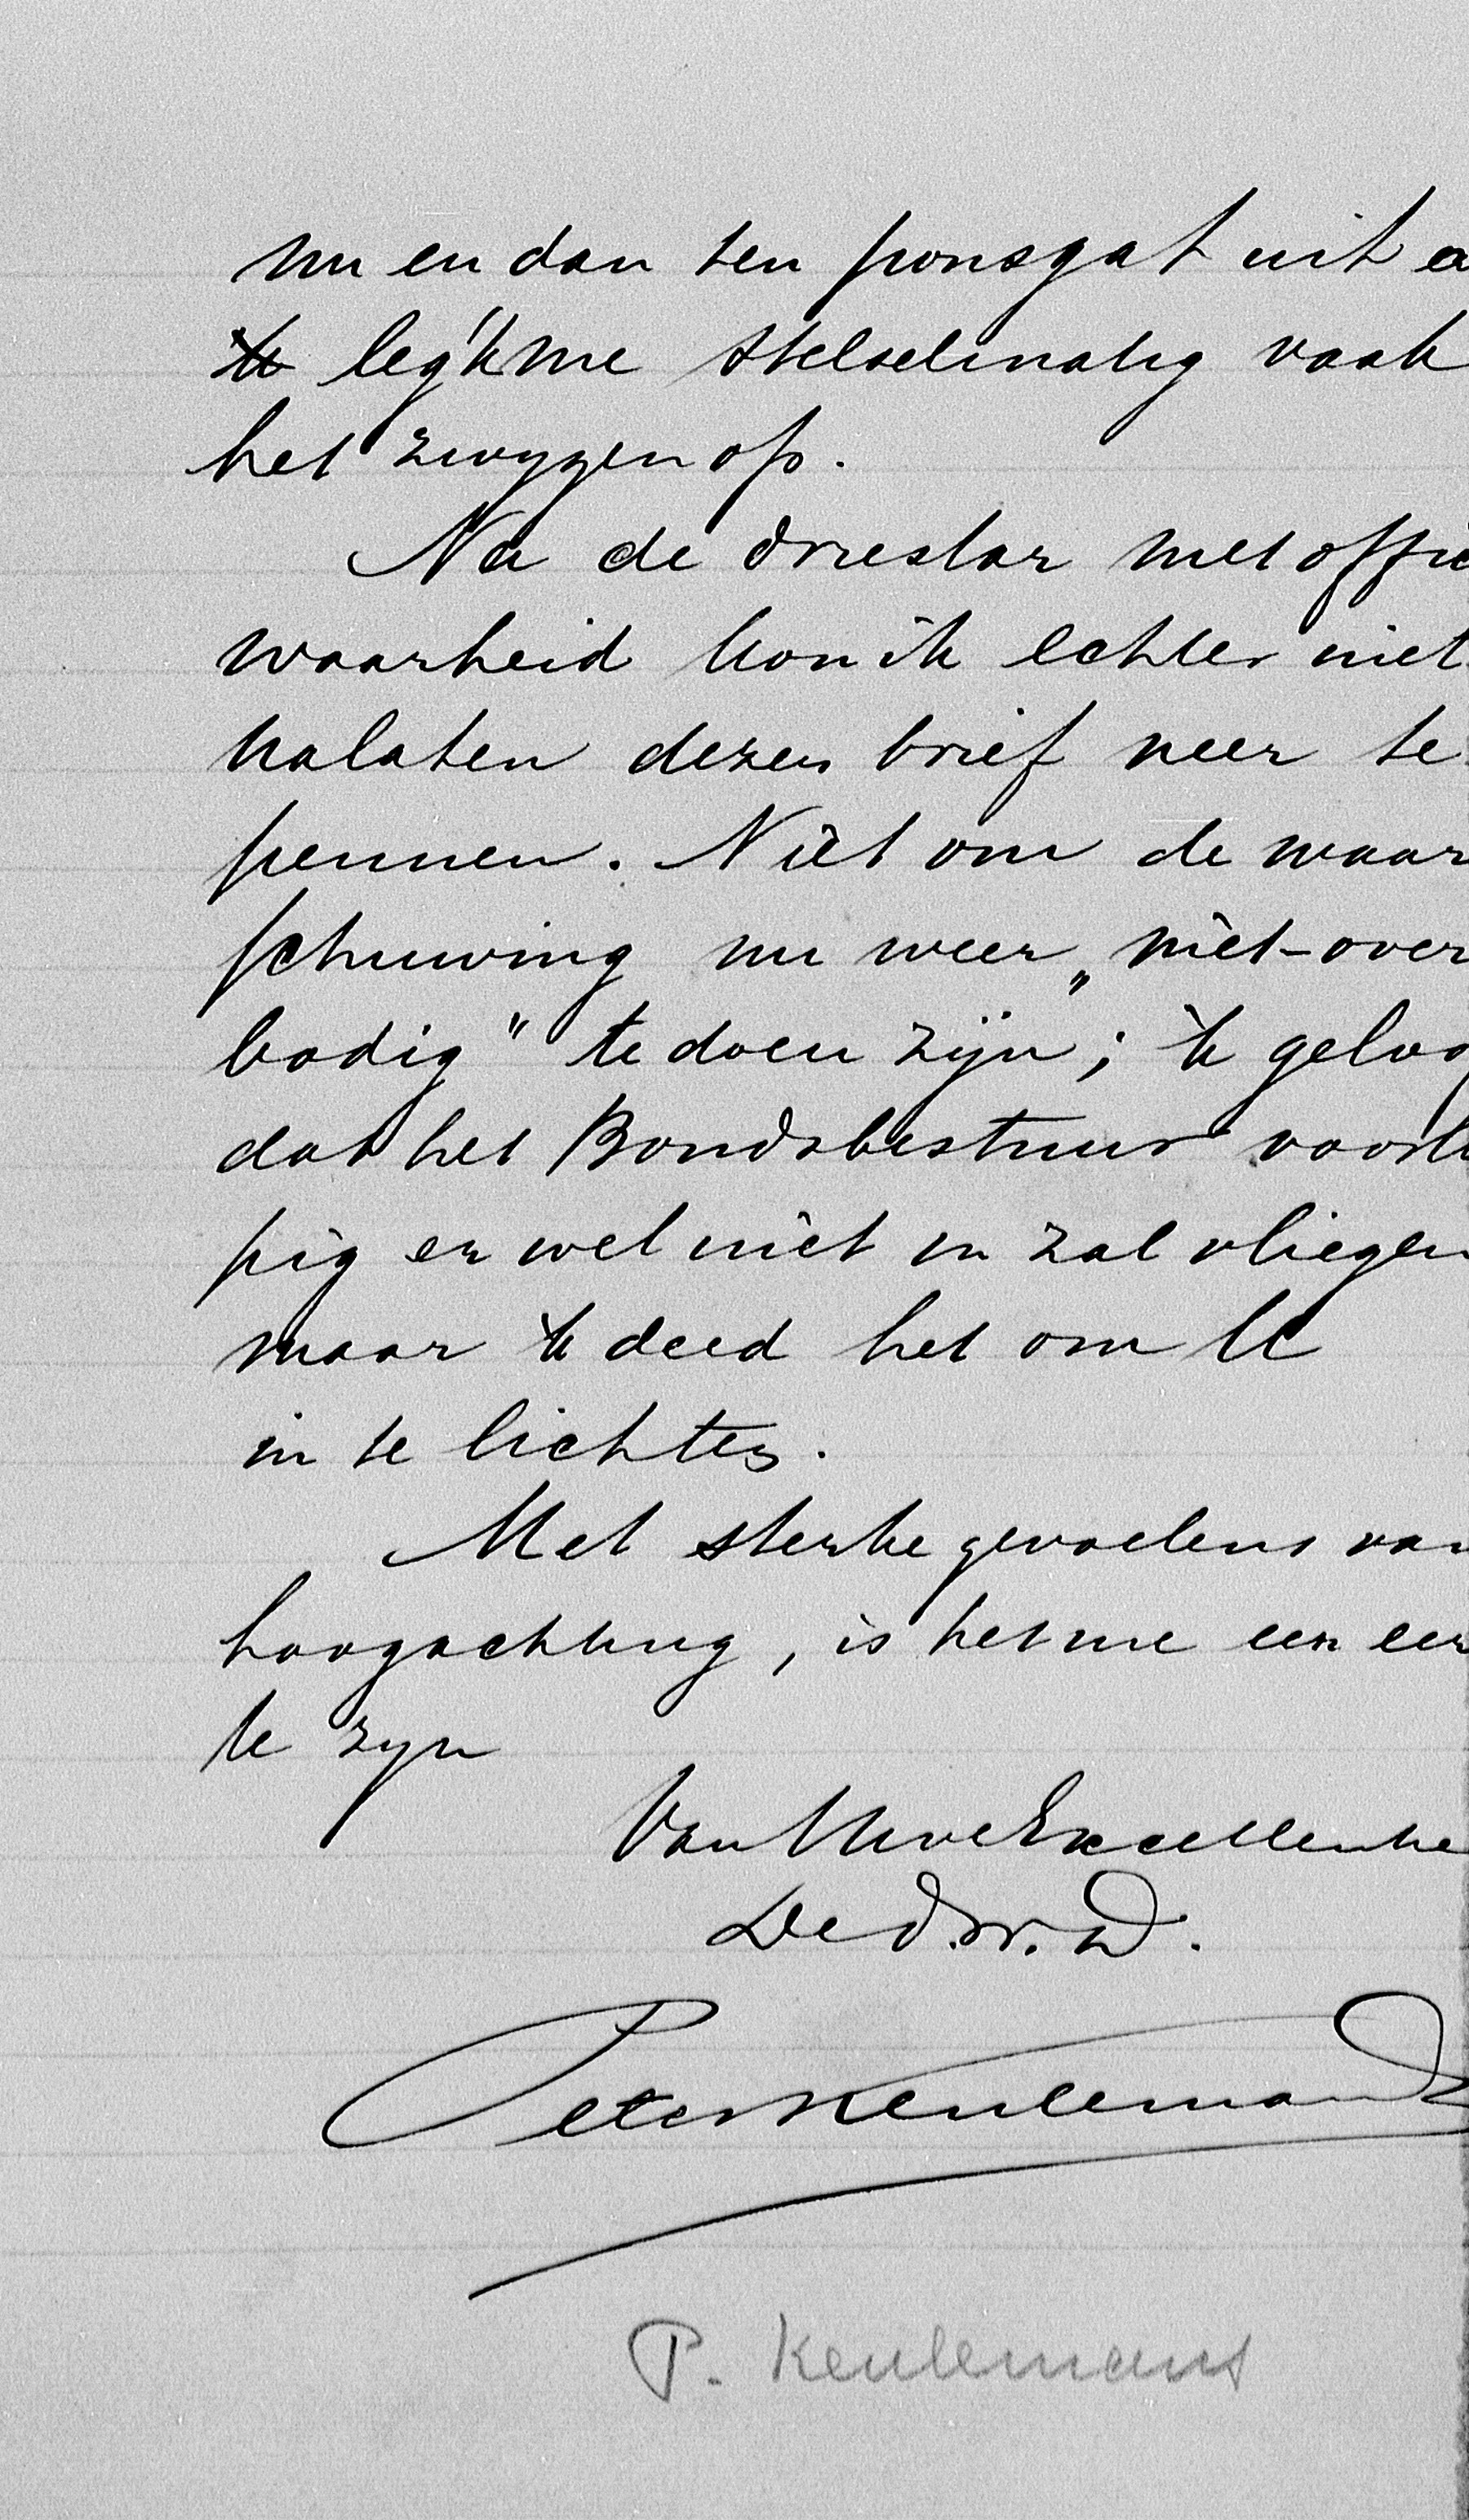 nu en dan een ponsgat uit
leg 'k me stelselmatig vaak
het zwygen op.
Na de driestar met offic
waarheid kon ik echter niet
nalaten dezen brief neer te
pennen. Niet om de waar
schuwing nu weer „niet-over
bodig" te doen zijn; 'k geloo
dat het Bondsbestuur voorl
pig er wel niet in zal vliegen
maar 'k deed het om U
in te lichten.
Met sterke gevoelens van
hoogachting, is het me een eer
te zyn
Van Uwe Excellentie
De d.w.D.
Peter Keulemans
P. Keulemans